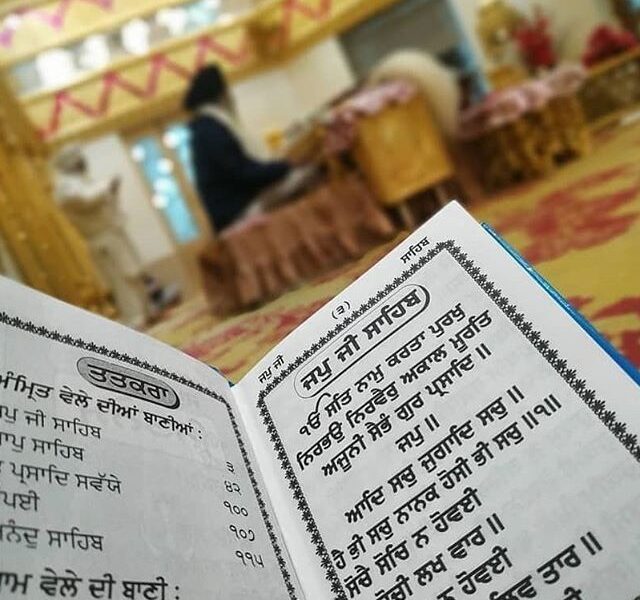 ਤਤਕਰਾ
ਅੰਮ੍ਰਿਤ ਵੇਲੇ ਦੀਆਂ ਬਾਣੀਆਂ :
ਜਪੁ ਜੀ ਸਾਹਿਬ ੩
ਜਾਪੁ ਸਾਹਿਬ ੪੨
ਪ੍ਰਸਾਦਿ ਸਵੱਯੇ ੧੦੦
੧੦੭
ਅਨੰਦੁ ਸਾਹਿਬ ੧੧੫
ਵੇਲੇ ਦੀ ਬਾਣੀ :
ਜਪੁ ਜੀ (੩) ਸਾਹਿਬ
ਜਪੁ ਜੀ ਸਾਹਿਬ
ੴ ਸਤਿ ਨਾਮੁ ਕਰਤਾ ਪੁਰਖੁ
ਨਿਰਭਉ ਨਿਰਵੈਰੁ ਅਕਾਲ ਮੂਰਤਿ
ਅਜੂਨੀ ਸੈਭੰ ਗੁਰ ਪ੍ਰਸਾਦਿ ॥
ਜਪੁ ॥
ਆਦਿ ਸਚੁ ਜੁਗਾਦਿ ਸਚੁ ॥
ਹੈ ਭੀ ਸਚੁ ਨਾਨਕ ਹੋਸੀ ਭੀ ਸਚੁ ॥੧॥
ਸੋਚੈ ਸੋਚਿ ਨ ਹੋਵਈ
ਸੋਚੀ ਲਖ ਵਾਰ ॥
ਨ ਹੋਵਈ
ਲਿਵ ਤਾਰ ॥